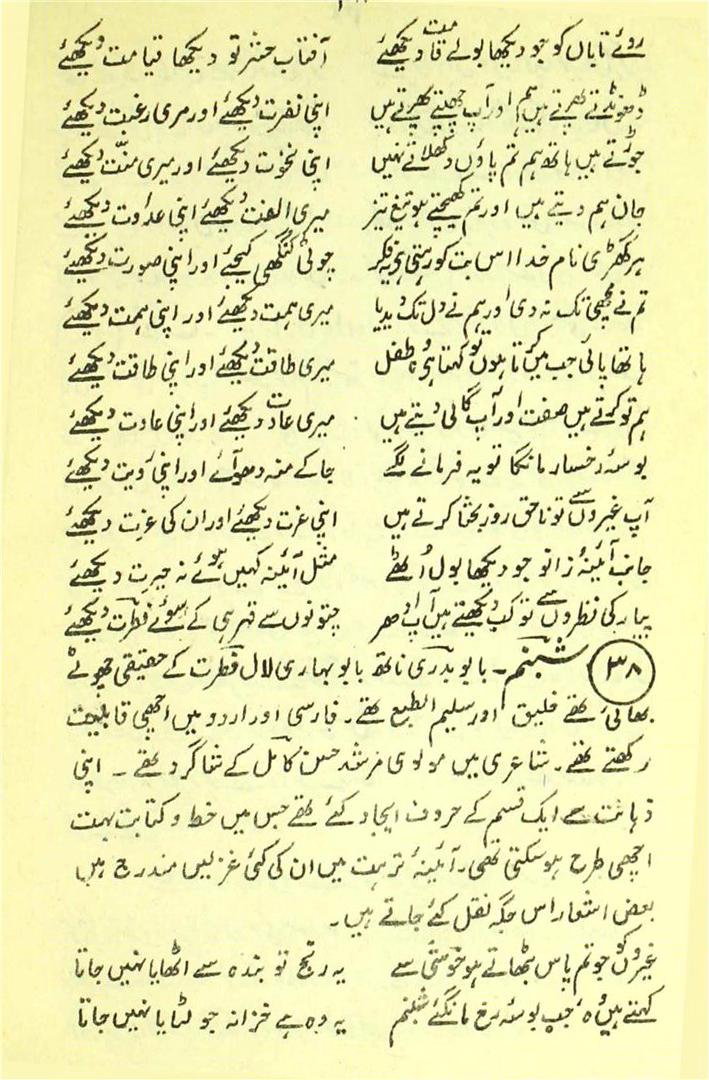 روئے تاباں کو جو دیکھا بولے قامت دیکھئے آفتاب حشر تو دیکھا قیامت دیکھئے
ڈھونڈتے پھرتے ہیں ہم اور آپ چھپتے پھرتے ہیں اپنی نفرت دیکھئے اور مری رغبت دیکھئے
جوڑتے ہیں ہاتھ ہم تم پاؤں دکھلاتے نہیں اپنی نخوت دیکھئے اور میری منّت دیکھئے
جان ہم دیتے ہیں اور تم کھینچتے ہو تیغ تیز میری الفت دیکھئے اپنی عداوت دیکھئے
ہر گھڑی نام خدا اس بت کو رہتی ہی یہ فکر چوٹی کنگھی کیجئے اور اپنی صورت دیکھئے
تم نے مچھی تک نہ دی اور ہم نے دل تک دیدیا میری ہمت دیکھئے اور اپنی ہمت دیکھئے
ہاتھا پائی جب میں کرتا ہوں تو کہتا ہی وہ طفل میری طاقت دیکھئے اور اپنی طاقت دیکھئے
ہم تو کرتے ہیں صفت اور آپ گالی دیتے ہیں میری عادت دیکھئے اور اپنی عادت دیکھئے
بوسۂ رخسار مانگا تو یہ فرمانے لگے جا کے منہ دھو آئے اور اپنی رویت دیکھئے
آپ غیروں سے تو ناحق روز بحثا کرتے ہیں اپنی عزت دیکھئے اور ان کی عزت دیکھئے
جانب آئینۂ زانو جو دیکھا بول اُٹھے مثل آئینہ کہیں ہوئے نہ حیرت دیکھئے
پیار کی نظروں سے تو کب دیکھتے ہیں آپ ادھر چتونوں سے قہر ہی کے سوئے فطرت دیکھئے
۳۸ شبنم۔ بابو بدری ناتھ بابو بہاری لال فطرت کے حقیقی چھوٹے
بھائی تھے خلیق اور سلیم الطبع تھے۔ فارسی اور اردو میں اچھی قابلیت
رکھتے تھے۔ شاعری میں مولوی مرشد حسن کامل کے شاگرد تھے۔ اپنی
ذہانت سے ایک قسم کے حروف ایجاد کئے تھے جس میں خط و کتابت بہت
اچھی طرح ہوسکتی تھی۔ آئینۂ تربیت میں ان کی کئی غزلیں مندرج ہیں
بعض اشعار اس جگہ نقل کئے جاتے ہیں۔
غیروں کو جو تم پاس بٹھاتے ہو خوشی سے یہ رنج تو بندہ سے اٹھایا نہیں جاتا
کہتے ہیں وہ جب بوسۂ رخ مانگئے شبنم یہ وہ ہے خزانہ جو لٹایا نہیں جاتا